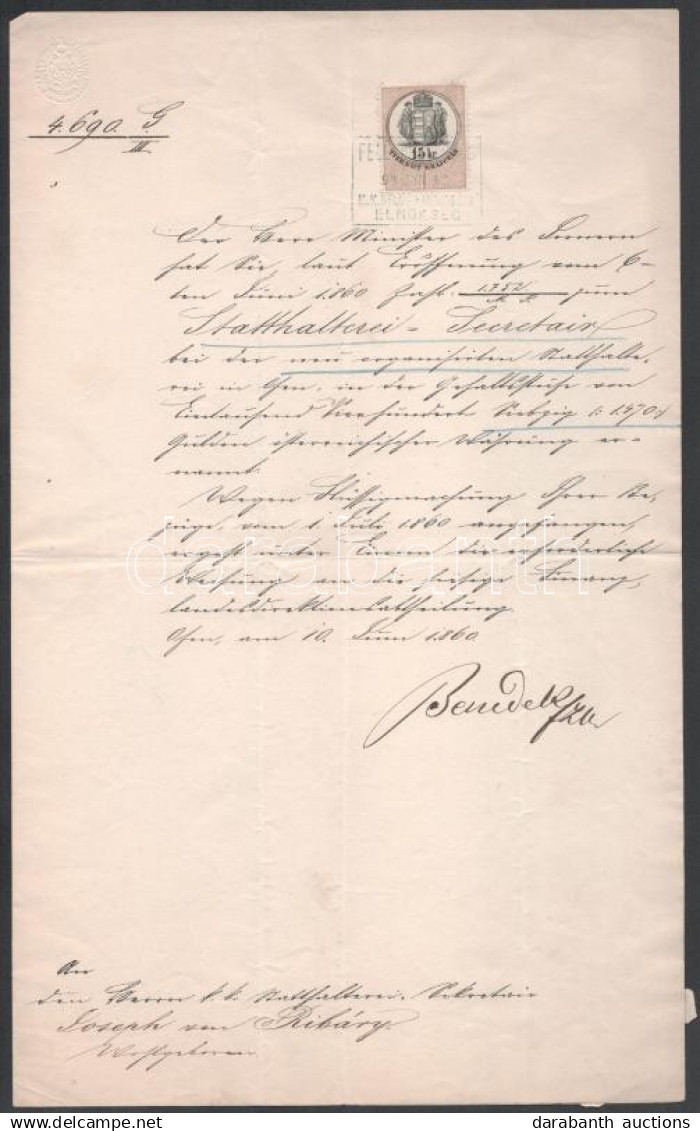 4.690. G
III
15 kr
ELNÖKSÉG
Der Herr Minister des Innern
hat Sie, laut Eröffnung vom 6-
ten Juni 1860 Zahl 1752/ zum
Statthalterei-Secretair
bei der neu organisirten Statthalte-
rei in Ofen, in der Gehaltsstufe von
Eintausend Vierhundert Siebzig /: 1.470 :/
Gulden österreichischer Währung er-
nannt.
Wegen Flüssigmachung Ihrer Be-
züge, vom 1. Juli 1860 angefangen,
ergeht unter Einem die erforderliche
Weisung an die hiesige Finanz-
landesdirektionsabtheilung.
Ofen, am 10. Juni 1860.
Benedek
An
den Herrn k. k. Statthalterei-Sekretair
Joseph von Ribáry
Wohlgeboren
darabanth
darabanth auctions